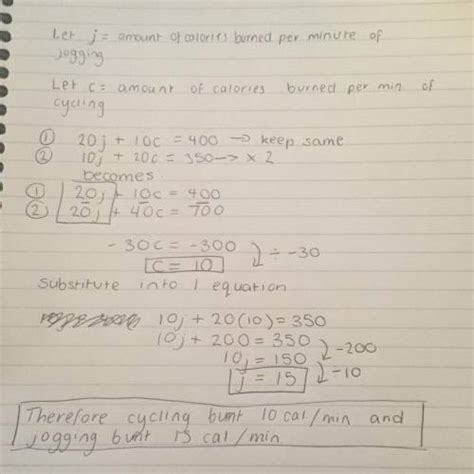 Let j = amount of calories burned per minute of
jogging
Let c = amount of calories burned per min of
cycling
① 20j + 10c = 400 → keep same
② 10j + 20c = 350 → × 2
becomes
① 20j + 10c = 400
② 20j + 40c = 700
- 30c = -300 ÷ -30
c = 10
Substitute into 1 equation
10j + 20(10) = 350
10j + 200 = 350
10j = 150 -200
j = 15 ÷10
Therefore cycling bunt 10 cal/min and
jogging bunt 15 cal/min